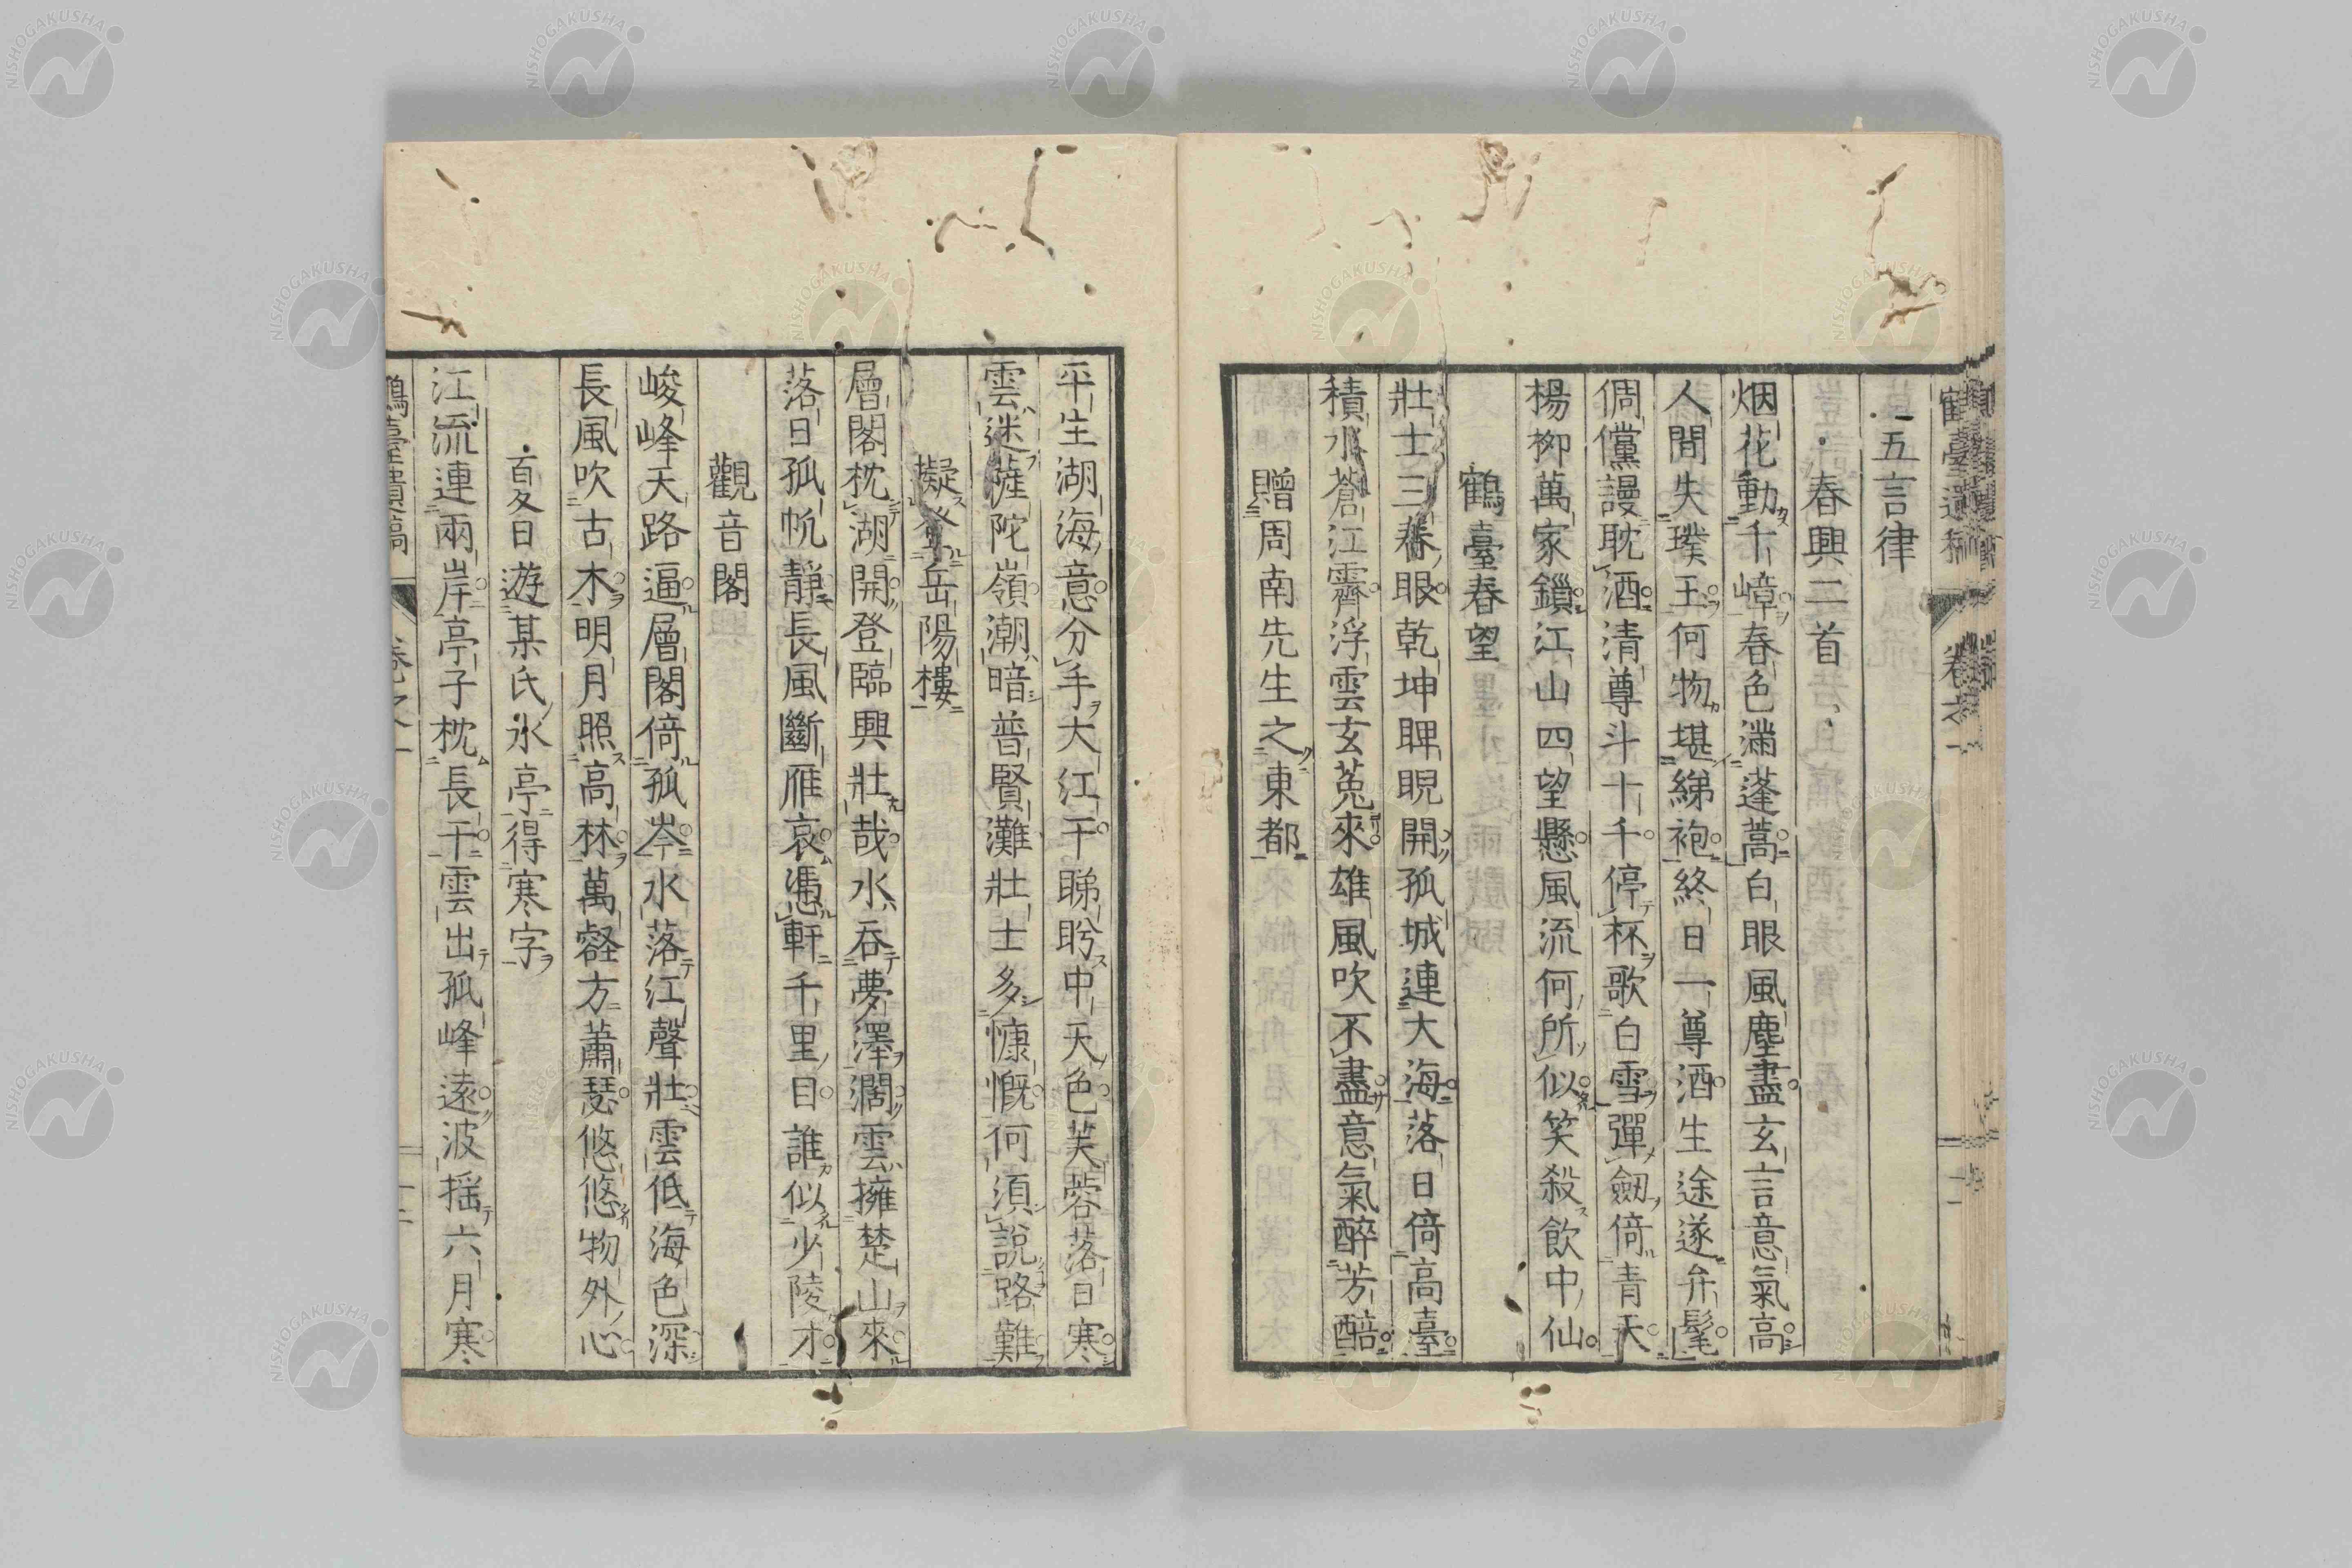 五言律
春興二首
烟花動千嶂春色滿蓬蒿白眼風塵盡玄言意氣高
人間失璞玉何物堪綈袍終日一尊酒生途遂弁髦
倜儻謾耽酒清尊斗十千停杯歌白雪彈劔倚青天
楊柳萬家鎖江山四望懸風流何所似笑殺飲中仙
鶴臺春望
壯士三春眼乾坤睥睨開孤城連大海落日倚高臺
積水蒼江霽浮雲玄菟來雄風吹不盡意氣醉芳醅
贈周南先生之東都
平生湖海意分手大江干睇盻中天色芙蓉落日寒
雲迷薩陀嶺潮暗普賢灘壯士多慷慨何須說路難
擬登岳陽樓
層閣枕湖開登臨興壯哉水吞夢澤濶雲擁楚山來
落日孤帆靜長風斷雁哀憑軒千里目誰似少陵才
觀音閣
峻峰天路逼層閣倚孤岑水落江聲壯雲低海色深
長風吹古木明月照高林萬壑方蕭瑟悠悠物外心
夏日遊某氏水亭得寒字
江流連兩岸亭子枕長干雲出孤峰遠波揺六月寒
鶴臺遺稿
NISHOGAKUSHA